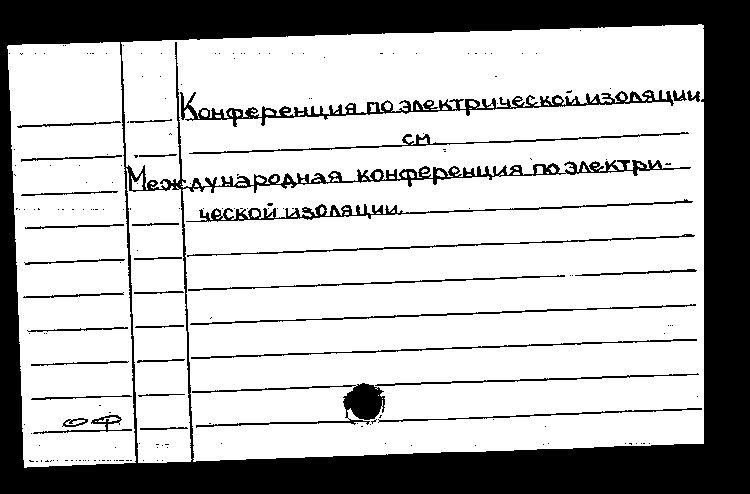 Конференция по электрической изоляции.
см.
Международная конференция по электри-
ческой изоляции.
ОФ